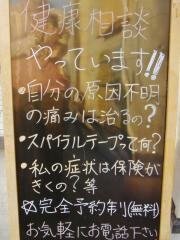 健康相談
やっています!!
・自分の原因不明
の痛みは治るの?
・スパイラルテープって何?
・私の症状は保険が
きくの?等
☆完全予約制(無料)
お気軽にお電話下さい